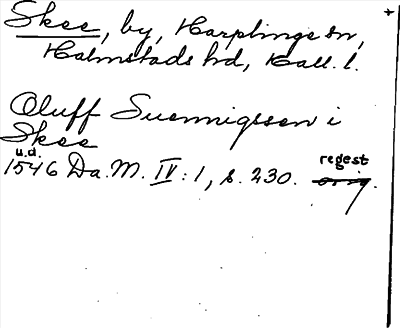 Skee, by, Harplinge sn,
Halmstads hd, Hall. l.
Oluff Suenningssen i
Skee
u.d.
1546 Da. M. IV : 1, s. 230. regest
orig.